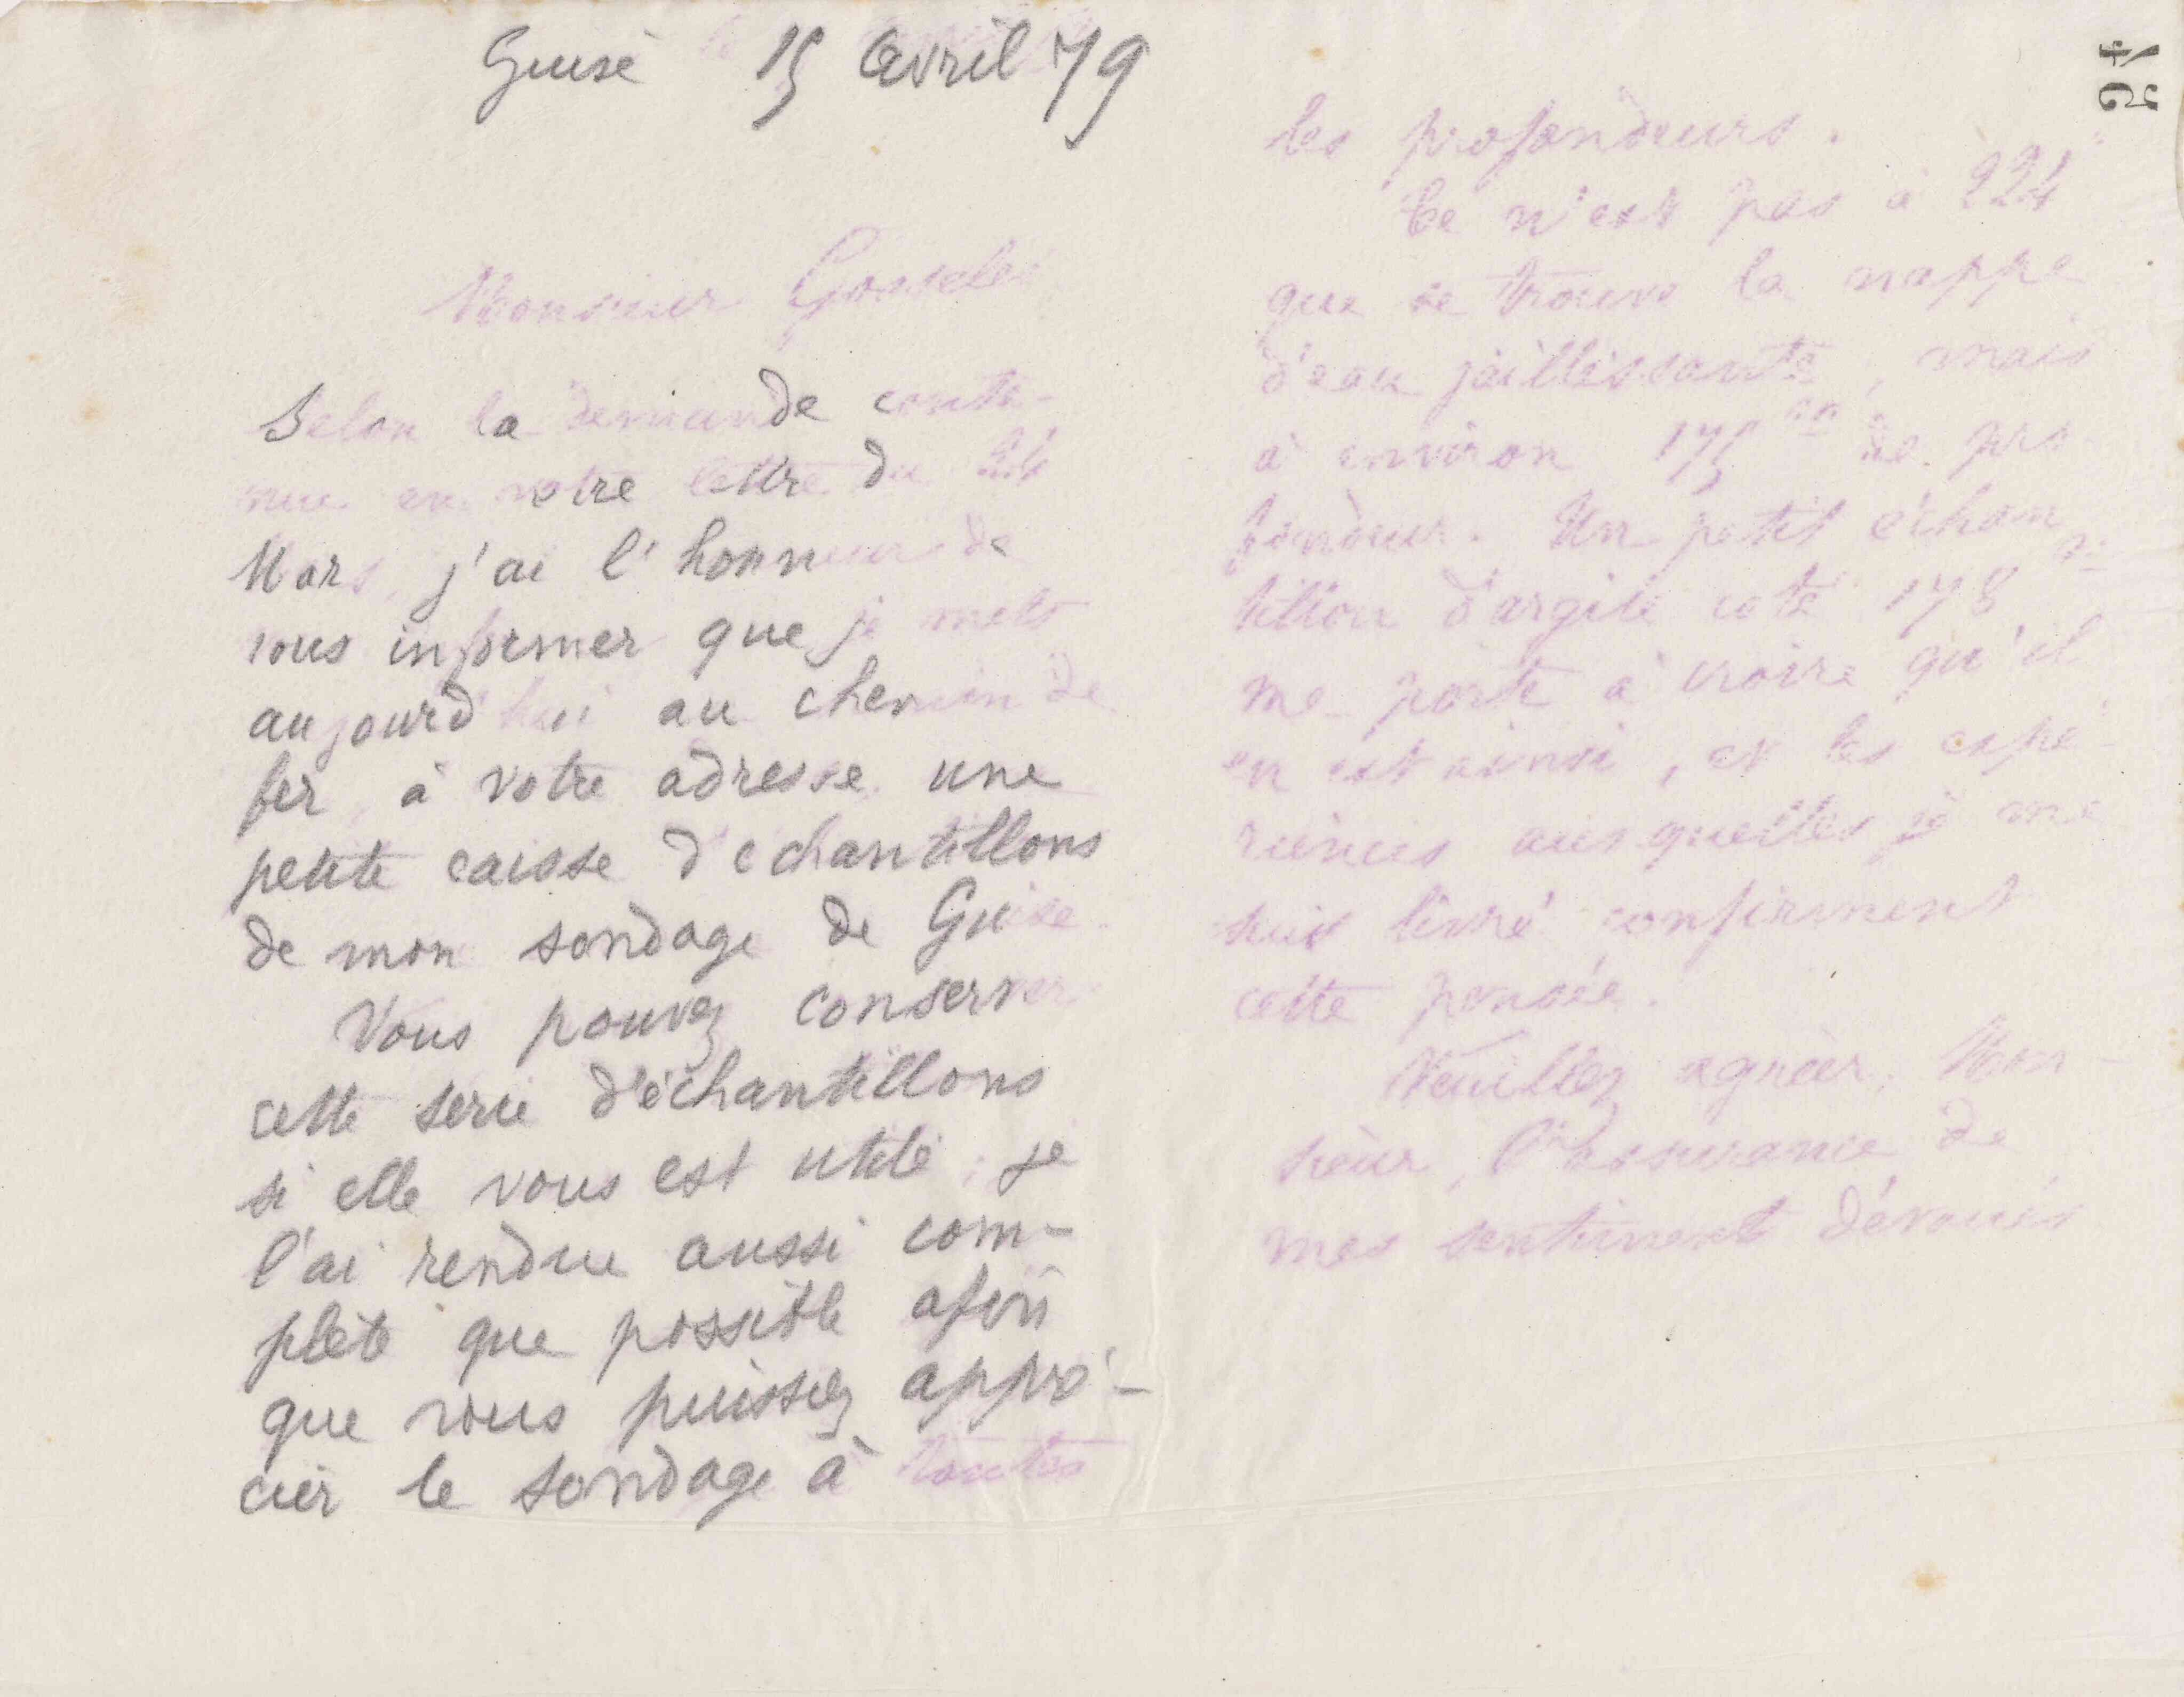 Guise 15 Avril 79
Monsieur Gosselet
Selon la demande conte-
nue en votre lettre du 24
Mars, j'ai l'honneur de
vous informer que je mets
aujourd'hui au chemin de
fer, à votre adresse une
petite caisse d'echantillons
de mon sondage de Guise.
Vous pouvez conserver
cette serie d'échantillons
si elle vous est utile ; je
l'ai rendue aussi com-
plète que possible afin
que vous puissiez appré-
cier le sondage à toutes
les profondeurs.
Ce n'est pas à 224 m
que se trouve la nappe
d'eau jaillissante, mais
à environ 175 m de pro
fondeur. Un petit échan
tillon d'argile coté 178 m
me porte à croire qu'il
en est ainsi, et les expé-
riences auxquelles je me
suis livré confirment
cette pensée.
Veuillez agréer, Mon-
sieur, l'assurance de
mes sentiment dévoués
45